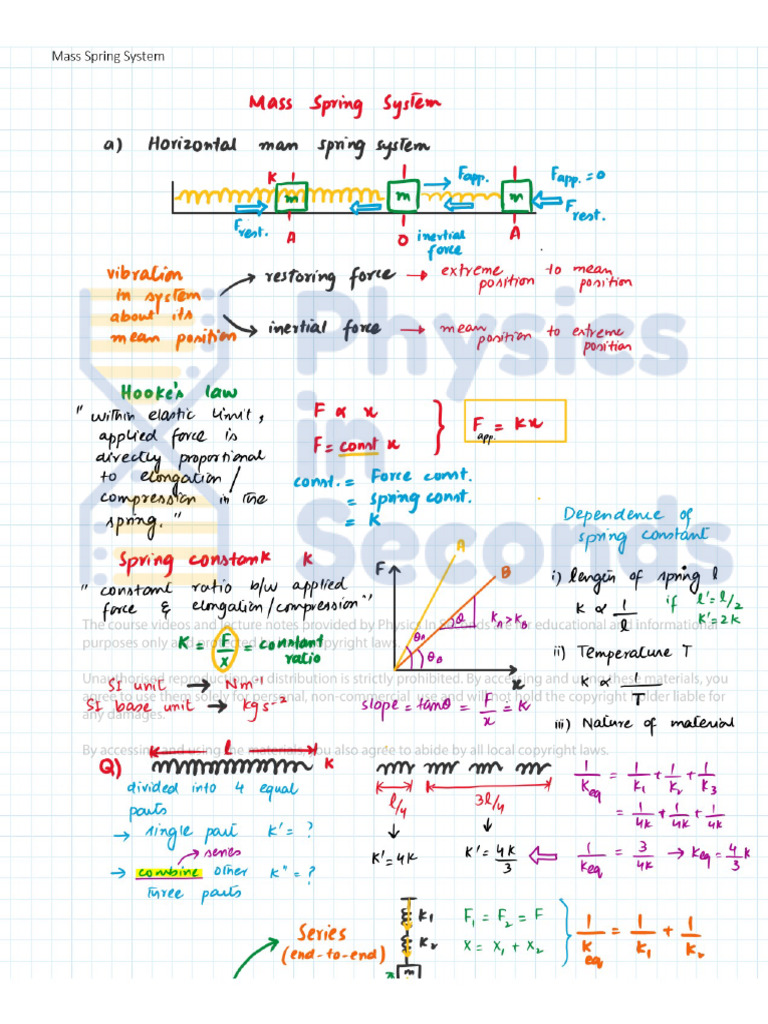 Mass Spring System
Mass Spring System
a) Horizontal man spring system
K
m
m
m
Fapp.
Fapp. = 0
Frest.
Frest.
A
O
inertial force
A
vibration in system about its mean position
restoring force → extreme position to mean position
inertial force → mean position to extreme position
Physics
in
Seconds
Hooke's law
"within elastic limit,
applied force is
directly proportional
to elongation/
compression in the
spring."
F α x
F = const x
Fapp. = Kx
const. = Force const.
= spring const.
= K
Spring constant K
"constant ratio b/w applied
force & elongation/compression"
K = F/x = constant ratio
SI unit → Nm⁻¹
SI base unit → kgs⁻²
F
A
B
θ
kA > kB
θA
θB
x
slope = tanθ = F/x = K
Dependence of
spring constant
i) length of spring l
K α 1/l if l' = l/2
K' = 2K
ii) Temperature T
K α 1/T
iii) Nature of material
The course videos and lecture notes provided by Physics In Seconds are for educational and informational
purposes only and protected by copyright laws.
Unauthorised reproduction or distribution is strictly prohibited. By accessing and using these materials, you
agree to use them solely for personal, non-commercial use and will not hold the copyright holder liable for
any damages.
By accessing and using the materials, you also agree to abide by all local copyright laws.
Q)
L
K
divided into 4 equal
parts
→ single part K' = ?
series
→ combine other K" = ?
three parts
l/4
3l/4
K' = 4K
K' = 4K/3
1/Keq = 1/K1 + 1/K2 + 1/K3
= 1/4K + 1/4K + 1/4K
1/Keq = 3/4K → Keq = 4/3 K
Series
(end-to-end)
K1
K2
m
F1 = F2 = F
x = x1 + x2
1/Keq = 1/K1 + 1/K2